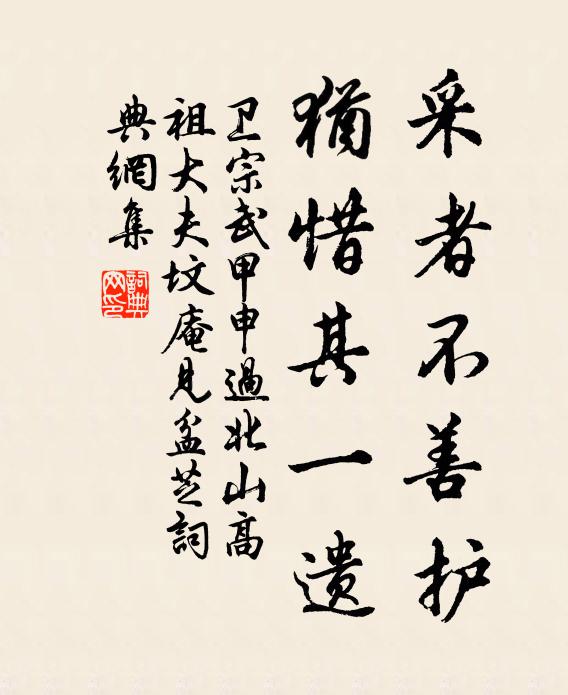 采者不善护
犹惜其一遗
卫宗武甲申過北山高
祖大夫坟庵見盆芝詞
典網集
詞典網印